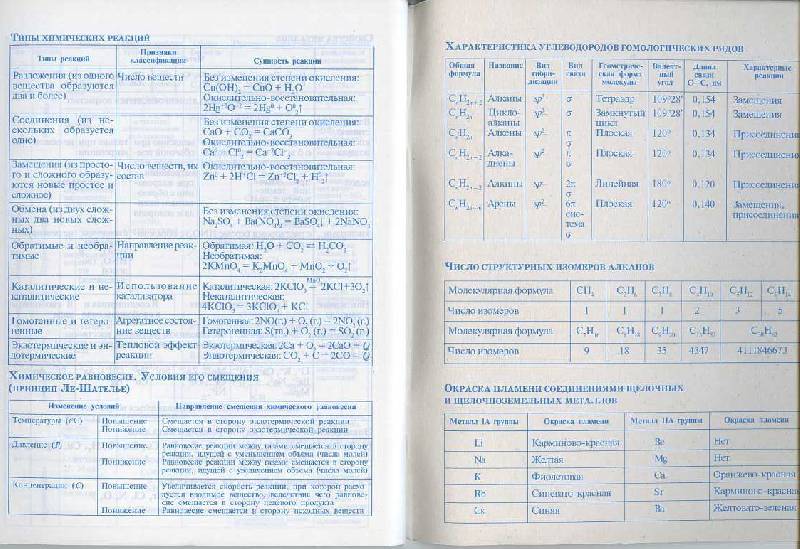 Типы химических реакций
Типы реакций
Признаки
классификации
Сущность реакции
Разложения (из одного
вещества образуются
два и более)
Число веществ
Без изменения степени окисления:
Cu(OH)₂ = CuO + H₂O
Окислительно-восстановительная:
Соединения (из не-
скольких образуется
одно)
Без изменения степени окисления:
CaO + CO₂ = CaCO₃
Окислительно-восстановительная:
Замещения (из просто-
го и сложного образу-
ются новые простое и
сложное)
Число веществ, их
состав
Окислительно-восстановительная:
Обмена (из двух слож-
ных два новых слож-
ных)
Без изменения степени окисления:
Na₂SO₄ + Ba(NO₃)₂ = BaSO₄↓ + 2NaNO₃
Обратимые и необра-
тимые
Направление реак-
ции
Обратимая: H₂O + CO₂ ⇄ H₂CO₃
Необратимая:
2KMnO₄ = K₂MnO₄ + MnO₂ + O₂↑
Каталитические и не-
каталитические
Использование
катализатора
Каталитическая: 2KClO₃ = 2KCl + 3O₂↑
Некаталитическая:
4KClO₃ = 3KClO₄ + KCl
Гомогенные и гетеро-
генные
Агрегатное состоя-
ние веществ
Гомогенная: 2NO(г.) + O₂ (г.) = 2NO₂ (г.)
Гетерогенная: S(тв.) + O₂ (г.) = SO₂ (г.)
Экзотермические и эн-
дотермические
Тепловой эффект
реакции
Экзотермическая: 2Ca + O₂ = 2CaO + Q
Эндотермическая: CO₂ + C = 2CO − Q
Химическое равновесие. Условия его смещения
(принцип Ле-Шателье)
Изменение условий
Направление смещения химического равновесия
Температура (t°C)
Повышение
Смещается в сторону эндотермической реакции
Понижение
Смещается в сторону экзотермической реакции
Давление (P)
Повышение
Равновесие реакции между газами смещается в сторону
реакции, идущей с уменьшением объема (числа молей)
Понижение
Равновесие реакции между газами смещается в сторону
реакции, идущей с увеличением объема (числа молей)
Концентрация (C)
Повышение
Увеличивается скорость реакции, при которой расхо-
дуется вводимое вещество, вследствие чего равнове-
сие смещается в сторону
Понижение
Равновесие смещается в сторону исходных веществ
Характеристика углеводородов гомологических рядов
Общая
формула
Название
Вид
гибри-
дизации
Вид
связи
Геометриче-
ская форма
молекулы
Валент-
ный
угол
Длина
связи
C–C, нм
Характерные
реакции
CₙH₂ₙ₊₂ Алканы sp³ σ Тетраэдр 109°28′ 0,154 Замещения
CₙH₂ₙ Цикло- sp³ σ Замкнутый 109°28′ 0,154 Замещения
алканы цикл
CₙH₂ₙ Алкены sp² π Плоская 120° 0,134 Присоединения
σ
CₙH₂ₙ₋₂ Алка- sp² π Плоская 120° 0,134 Присоединения
диены σ
CₙH₂ₙ₋₂ Алкины sp 2π Линейная 180° 0,120 Присоединения
σ
CₙH₂ₙ₋₆ Арены sp² 6π Плоская 120° 0,140 Замещения,
сис- присоединения
тема
σ
Число структурных изомеров алканов
Молекулярная формула CH₄ C₂H₆ C₃H₈ C₄H₁₀ C₅H₁₂
Число изомеров 1 1 1 2 3 5
Молекулярная формула
Число изомеров 9 18 35 4347
Окраска пламени соединениями щелочных
и щелочноземельных металлов
Металл IA группы
Окраска пламени
Металл IIA группы
Окраска пламени
Li Карминово-красная Be Нет
Na Желтая Mg Нет
K Фиолетовая Ca Оранжево-красная
Rb Синевато-красная Sr Карминово-красная
Cs Синяя Ba Желтовато-зеленая